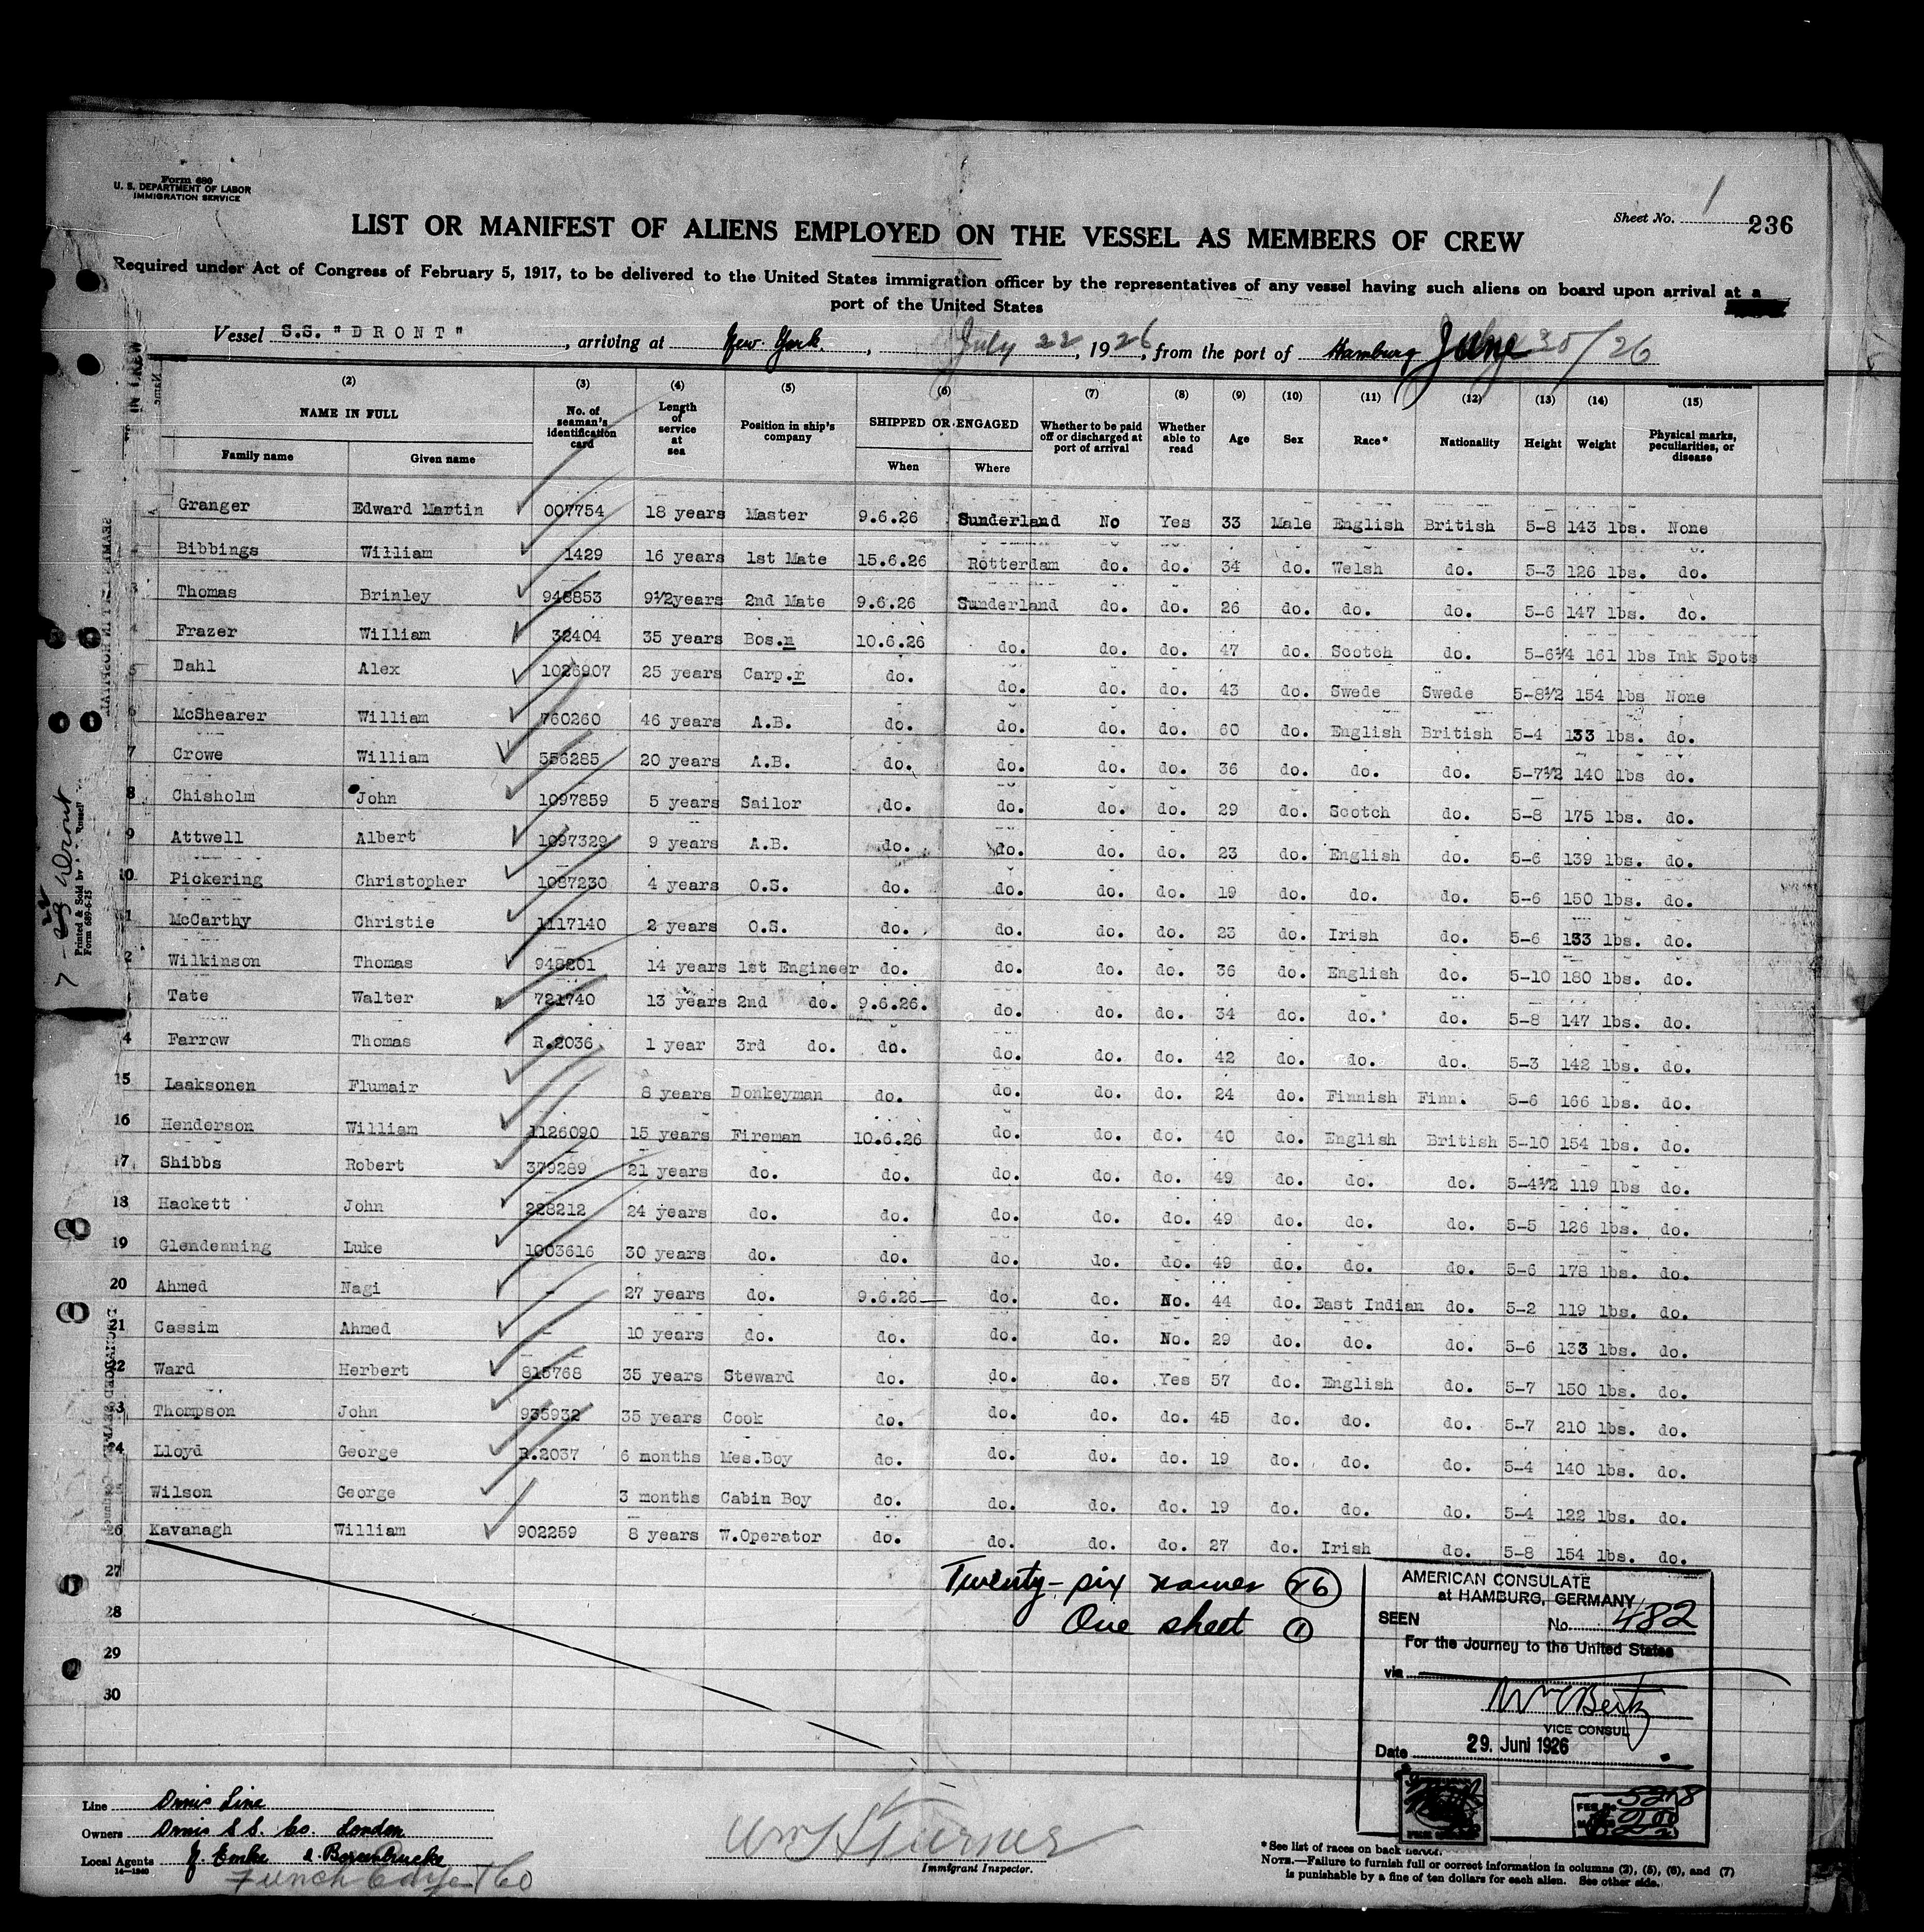 Form 680
U. S. DEPARTMENT OF LABOR
IMMIGRATION SERVICE
Sheet No. 1 236
LIST OR MANIFEST OF ALIENS EMPLOYED ON THE VESSEL AS MEMBERS OF CREW
Required under Act of Congress of February 5, 1917, to be delivered to the United States immigration officer by the representatives of any vessel having such aliens on board upon arrival at a
port of the United States
Vessel S.S. "DRONT", arriving at New York, July 22, 1926, from the port of Hamburg June 30/26
(2) (3) (4) (5) (6) (7) (8) (9) (10) (11) (12) (13) (14) (15)
NAME IN FULL No. of seaman's identification card Length of service at sea Position in ship's company SHIPPED OR ENGAGED Whether to be paid off or discharged at port of arrival Whether able to read Age Sex Race* Nationality Height Weight Physical marks, peculiarities, or disease
Family name Given name When Where
Granger Edward Martin 007754 18 years Master 9.6.26 Sunderland No Yes 33 Male English British 5-8 143 lbs. None
Bibbings William 1429 16 years 1st Mate 15.6.26 Rotterdam do. do. 34 do. Welsh do. 5-3 126 lbs. do.
3 Thomas Brinley 948853 9½years 2nd Mate 9.6.26 Sunderland do. do. 26 do. do. do. 5-6 147 lbs. do.
4 Frazer William 32404 35 years Bos.n 10.6.26 do. do. do. 47 do. Scotch do. 5-6¾ 161 lbs Ink Spots
5 Dahl Alex 1026907 25 years Carp.r do. do. do. do. 43 do. Swede Swede 5-8½ 154 lbs None
6 McShearer William 760260 46 years A.B. do. do. do. do. 60 do. English British 5-4 133 lbs. do.
7 Crowe William 556285 20 years A.B. do. do. do. do. 36 do. do. do. 5-7½ 140 lbs do.
8 Chisholm John 1097859 5 years Sailor do. do. do. do. 29 do. Scotch do. 5-8 175 lbs. do.
9 Attwell Albert 1097329 9 years A.B. do. do. do. do. 23 do. English do. 5-6 139 lbs. do.
10 Pickering Christopher 1087230 4 years O.S. do. do. do. do. 19 do. do. do. 5-6 150 lbs. do.
1 McCarthy Christie 1117140 2 years O.S. do. do. do. do. 23 do. Irish do. 5-6 133 lbs. do.
2 Wilkinson Thomas 948201 14 years 1st Engineer do. do. do. do. 36 do. English do. 5-10 180 lbs. do.
Tate Walter 721740 13 years 2nd do. 9.6.26. do. do. do. 34 do. do. do. 5-8 147 lbs. do.
4 Farrow Thomas R.2036 1 year 3rd do. do. do. do. do. 42 do. do. do. 5-3 142 lbs. do.
15 Laaksonen Flumair 8 years Donkeyman do. do. do. do. 24 do. Finnish Finn. 5-6 166 lbs. do.
16 Henderson William 1126090 15 years Fireman 10.6.26 do. do. do. 40 do. English British 5-10 154 lbs. do.
17 Shibbs Robert 379289 21 years do. do. do. do. do. 49 do. do. do. 5-4½ 119 lbs do.
18 Hackett John 228212 24 years do. do. do. do. do. 49 do. do. do. 5-5 126 lbs. do.
19 Glendenning Luke 1003616 30 years do. do. do. do. do. 49 do. do. do. 5-6 178 lbs. do.
20 Ahmed Nagi - 27 years do. 9.6.26 do. do. No. 44 do. East Indian do. 5-2 119 lbs. do.
21 Cassim Ahmed - 10 years do. do. do. do. No. 29 do. do. do. 5-6 133 lbs. do.
22 Ward Herbert 815768 35 years Steward do. do. do. Yes 57 do. English do. 5-7 150 lbs. do.
23 Thompson John 935932 35 years Cook do. do. do. do. 45 do. do. do. 5-7 210 lbs. do.
24 Lloyd George R.2037 6 months Mes.Boy do. do. do. do. 19 do. do. do. 5-4 140 lbs. do.
Wilson George 3 months Cabin Boy do. do. do. do. 19 do. do. do. 5-4 122 lbs. do.
26 Kavanagh William 902259 8 years W.Operator do. do. do. do. 27 do. Irish do. 5-8 154 lbs. do.
27
28
29
30
Twenty-six names 26
One sheet 1
AMERICAN CONSULATE
at HAMBURG, GERMANY
SEEN No. 482
For the Journey to the United States
via
VICE CONSUL
Date 29. Juni 1926
Line Ornis Line
Owners Ornis S.S. Co. London
Local Agents
14-1240
Funch Edye & Co
Wm H Turner
Immigrant Inspector.
*See list of races on back hereof.
NOTE.—Failure to furnish full or correct information in columns (2), (5), (6), and (7)
is punishable by a fine of ten dollars for each alien. See other side.
7 - 22 Dront
Printed & Sold by
Form 689-6-25